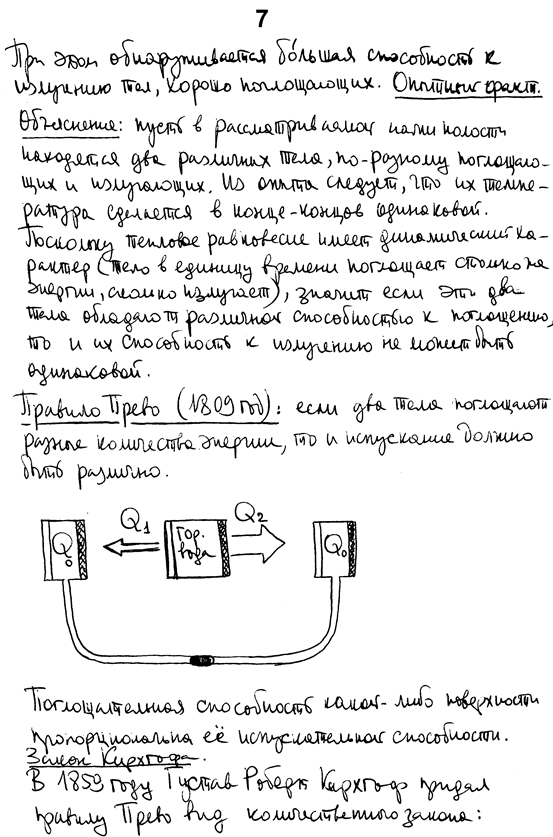 7
При этом обнаруживается бо́льшая способность к
излучению тел, хорошо поглощающих. Опытный факт.
Объяснение: пусть в рассматриваемой нами полости
находятся два различных тела, по-разному поглощаю-
щих и излучающих. Из опыта следует, что их темпе-
ратура сделается в конце-концов одинаковой.
Поскольку тепловое равновесие имеет динамический ха-
рактер (тело в единицу времени поглощает столько же
энергии, сколько излучает), значит если эти два
тела обладают различной способностью к поглощению,
то и их способность к излучению не может быть
одинаковой.
Правило Прево (1809 год): если два тела поглощают
разные количества энергии, то и испускание должно
быть различно.
Q1 Q2
Q0 Гор. вода Q0
Поглощательная способность какой-либо поверхности
пропорциональна её испускательной способности.
Закон Кирхгофа.
В 1859 году Густав Роберт Кирхгоф придал
правилу Прево вид количественного закона: